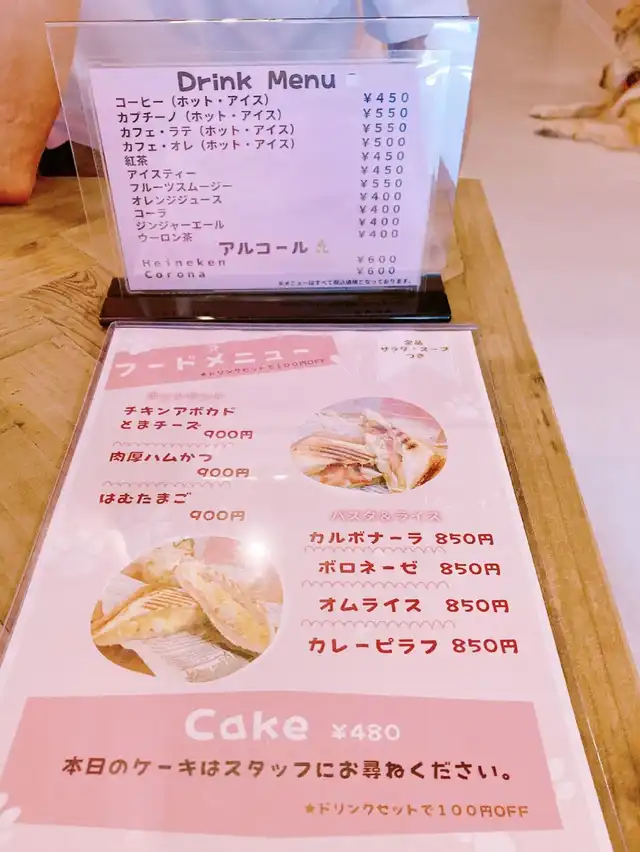 Drink Menu
コーヒー（ホット・アイス） ￥450
カプチーノ（ホット・アイス） ￥550
カフェ・ラテ（ホット・アイス） ￥550
カフェ・オレ（ホット・アイス） ￥500
紅茶 ￥450
アイスティー ￥450
フルーツスムージー ￥550
オレンジジュース ￥400
コーラ ￥400
ジンジャーエール ￥400
ウーロン茶 ￥400
アルコール
Heineken ￥600
Corona ￥600
※メニューはすべて税込価格となっております。
フードメニュー
★ドリンクセットで100円OFF
全品
サラダ・スープ
つき
チキンアボカド
とまチーズ
900円
肉厚ハムかつ
900円
はむたまご
900円
パスタ&ライス
カルボナーラ 850円
ボロネーゼ 850円
オムライス 850円
カレーピラフ 850円
Cake ¥480
本日のケーキはスタッフにお尋ねください。
★ドリンクセットで100円OFF